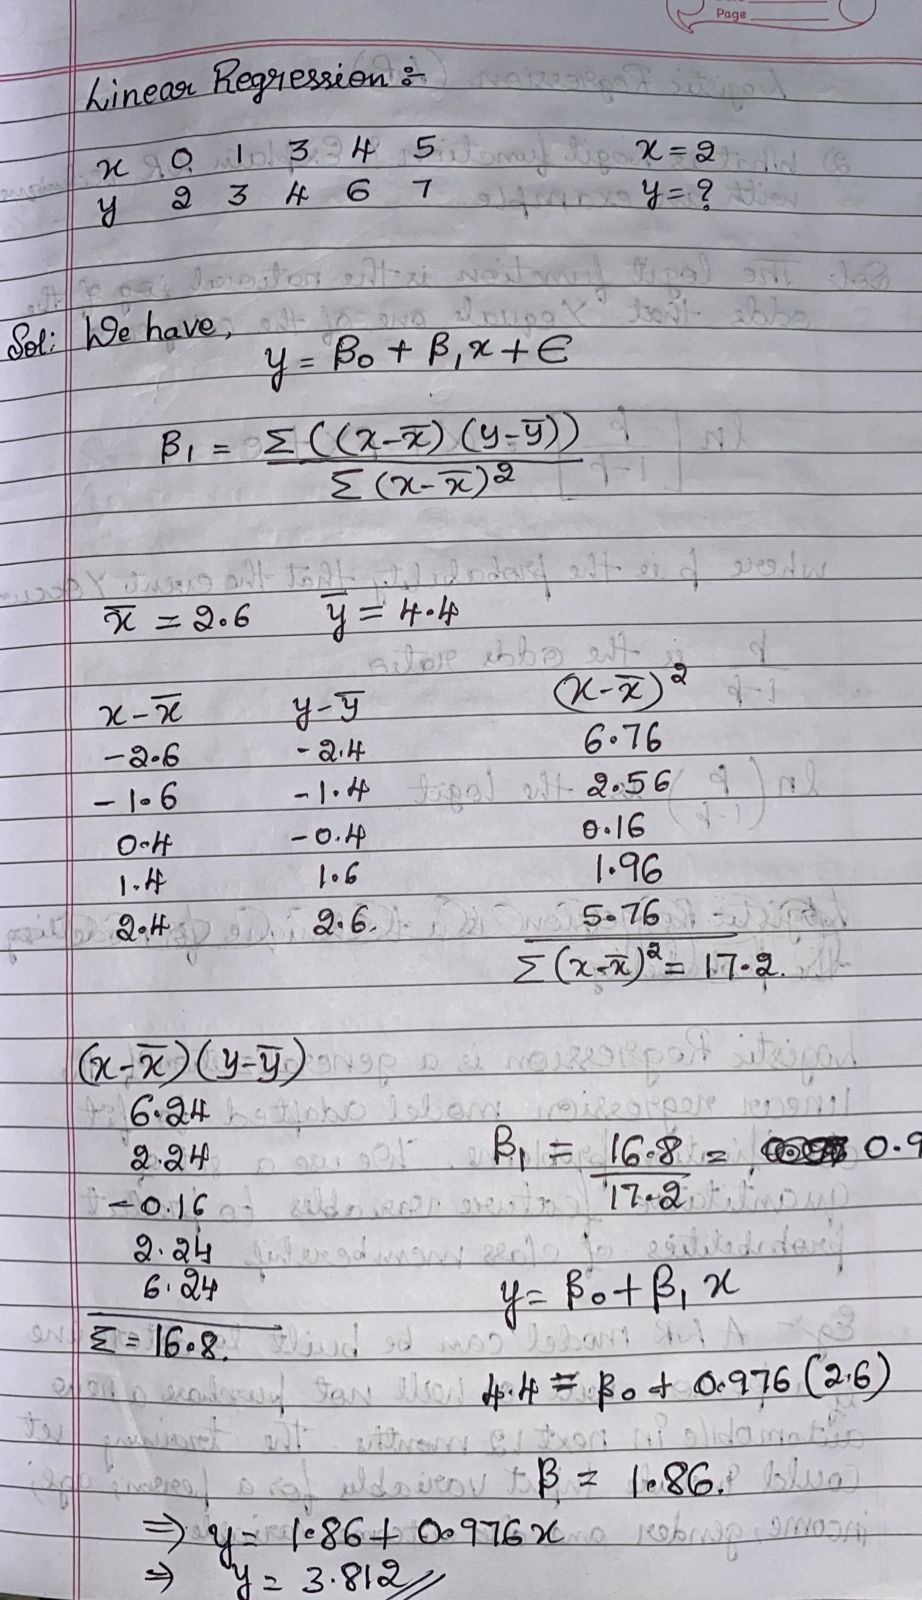 Page
Linear Regression :-
x 0 1 3 4 5 x = 2
y 2 3 4 6 7 y = ?
Sol: We have,
y = β₀ + β₁x + ϵ
β₁ = Σ((x-x̄)(y-ȳ))
Σ(x-x̄)²
x̄ = 2.6 ȳ = 4.4
x-x̄ y-ȳ (x-x̄)²
-2.6 -2.4 6.76
-1.6 -1.4 2.56
0.4 -0.4 0.16
1.4 1.6 1.96
2.4 2.6. 5.76
Σ(x-x̄)² = 17.2.
(x-x̄)(y-ȳ)
6.24
2.24
-0.16
2.24
6.24
Σ = 16.8.
β₁ = 16.8 = 0.9
17.2
y = β₀ + β₁ x
4.4 = β₀ + 0.976(2.6)
β = 1.86.
⇒ y = 1.86 + 0.976x
⇒ y = 3.812 //